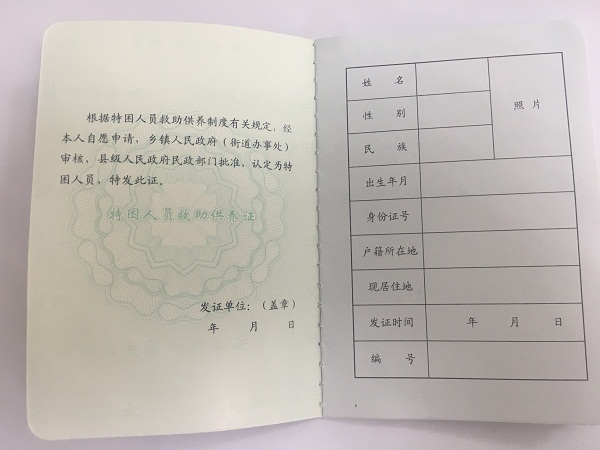 根据特困人员救助供养制度有关规定，经
本人自愿申请，乡镇人民政府（街道办事处）
审核，县级人民政府民政部门批准，认定为特
困人员，特发此证。
特困人员救助供养证
发证单位：（盖章）
年 月 日
姓 名
照 片
性 别
民 族
出生年月
身份证号
户籍所在地
现居住地
发证时间 年 月 日
编 号